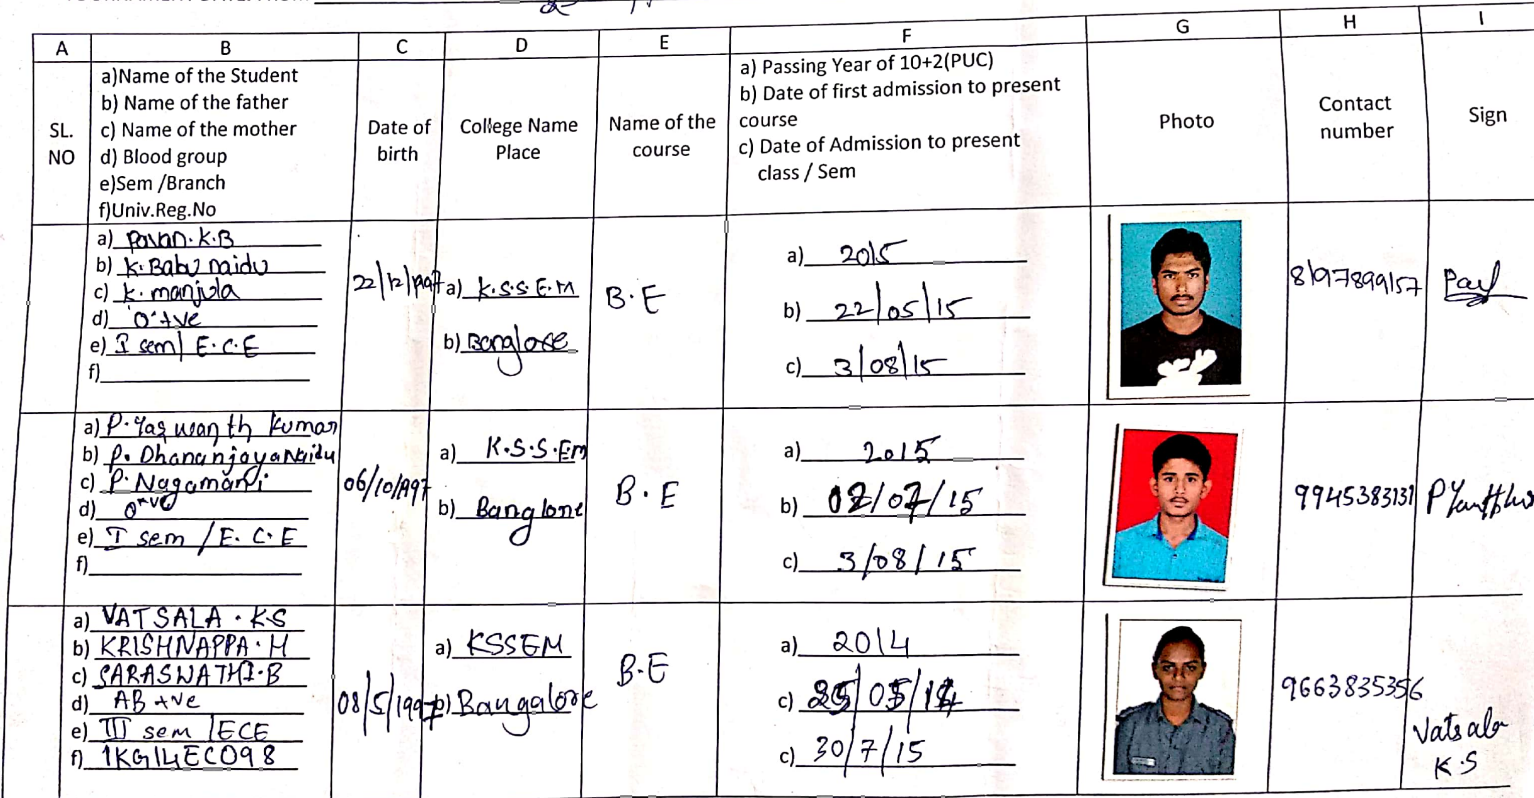 A B C D E F G H I
SL. NO
a)Name of the Student
b) Name of the father
c) Name of the mother
d) Blood group
e)Sem /Branch
f)Univ.Reg.No
Date of birth
College Name Place
Name of the course
a) Passing Year of 10+2(PUC)
b) Date of first admission to present
course
c) Date of Admission to present
class / Sem
Photo
Contact number
Sign
a) Pavan.K.B
b) K.Babu naidu
c) K. manjula
d) O+ve
e) I sem/ E.C.E
f)
22/12/1997
a) K.S.S.E.M
b) Banglore
B.E
a) 2015
b) 22/05/15
c) 3/08/15
8197899157
a) P.Yaswanth Kumar
b) P. Dhananjaya Naidu
c) P. Nagamani
d) O+ve
e) I sem /E.C.E
f)
06/10/1997
a) K.S.S.EM
b) Banglore
B.E
a) 2015
b) 02/07/15
c) 3/08/15
9945383131
a) VATSALA . KS
b) KRISHNAPPA. H
c) SARASWATHI.B
d) AB +ve
e) III sem /ECE
f) 1KG14EC098
08/5/1997
a) KSSEM
b) Bangalore
B.E
a) 2014
c)
c) 30/7/15
9663835356
Vatsala
K.S